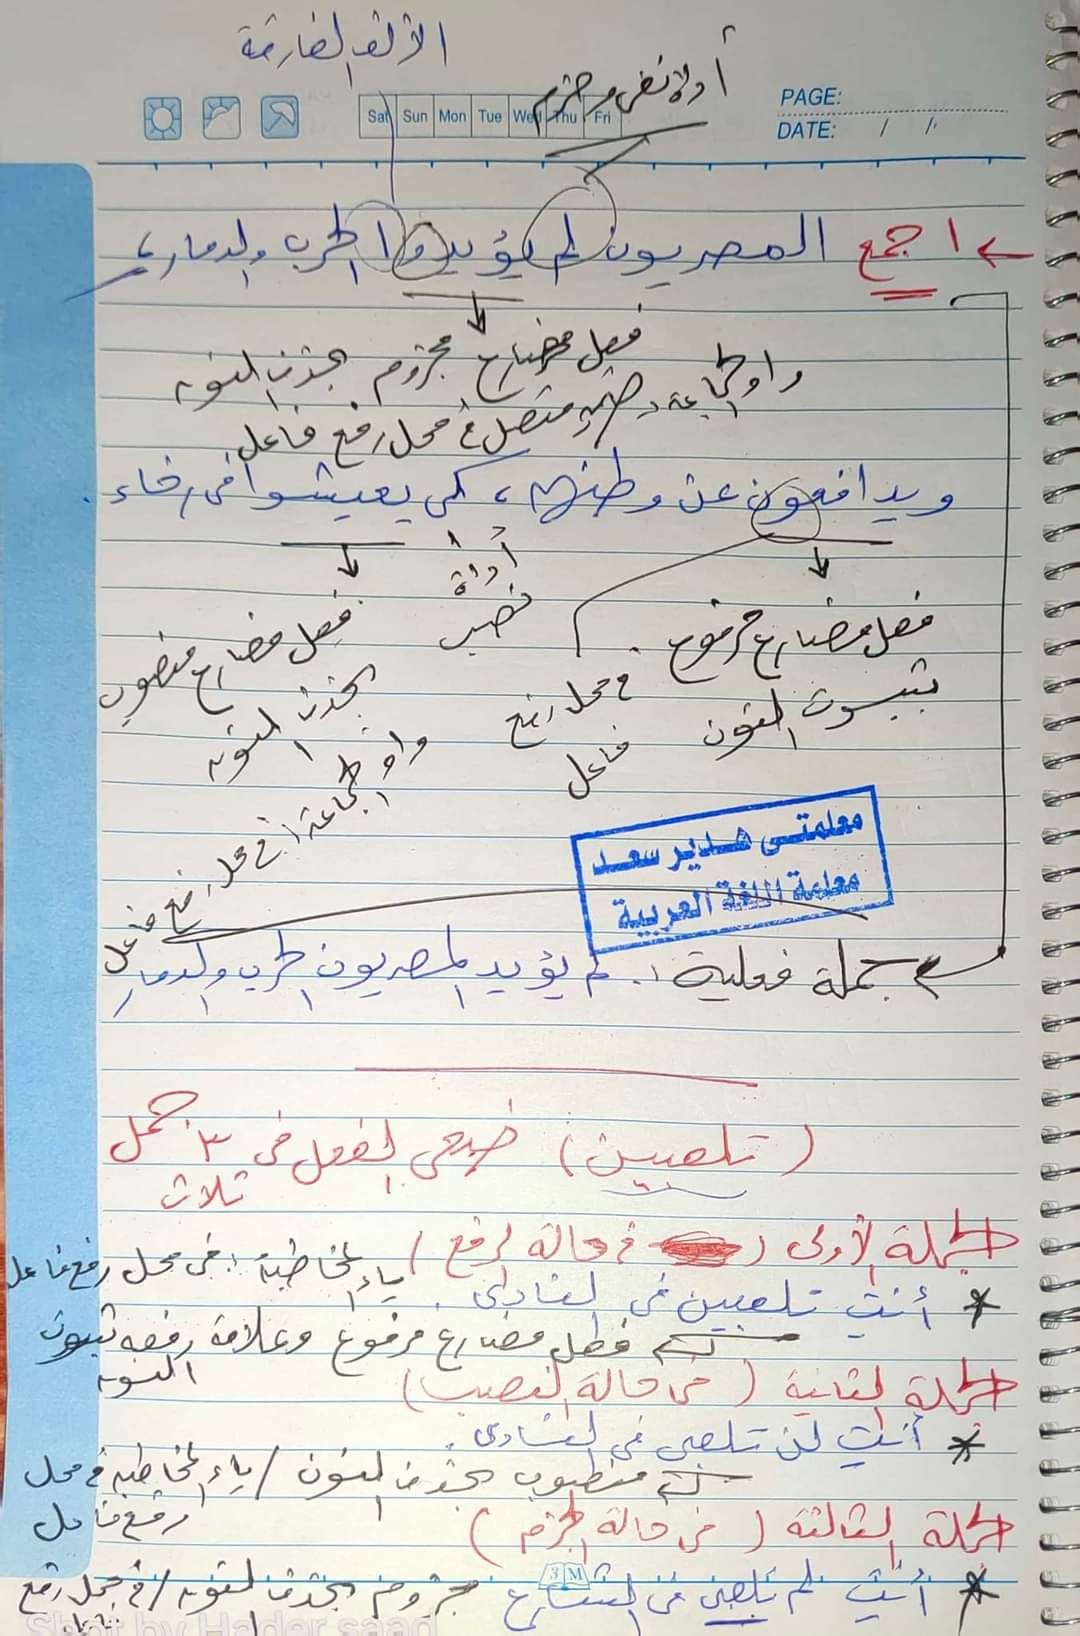 الألف الفارقة
أداة نفى وجزم
PAGE:
DATE: / /
Sat Sun Mon Tue Wed Thu Fri
← اجمع المصريون لم يؤيدوا الحرب والدمار،
فعل مضارع مجزوم بحذف النون
واو الجماعة ضمير متصل فى محل رفع فاعل
ويدافعون عن وطنهم، كى يعيشوا فى رخاء.
أداة نصب
فعل مضارع مرفوع بثبوت النون
فى محل رفع فاعل
فعل مضارع منصوب بحذف النون
واو الجماعة فى محل رفع فاعل
معلمتى هدير سعد
معلمة اللغة العربية
جملة فعلية: لم يؤيد المصريون الحرب والدمار
(تلعبين) ضعى الفعل فى ٣ جمل
ثلاث
الجملة الأولى (فى حالة الرفع)
ياء المخاطبة: فى محل رفع فاعل
* أنتِ تلعبين فى النادى.
فعل مضارع مرفوع وعلامة رفعه ثبوت النون
الجملة الثانية (فى حالة النصب)
* أنتِ لن تلعبى فى النادى.
منصوب بحذف النون / ياء المخاطبة فى محل رفع فاعل
الجملة الثالثة (فى حالة الجزم)
* أنتِ لم تلعبى فى الشارع
مجزوم بحذف النون / فى محل رفع فاعل
3 M
Shot by Hader saad